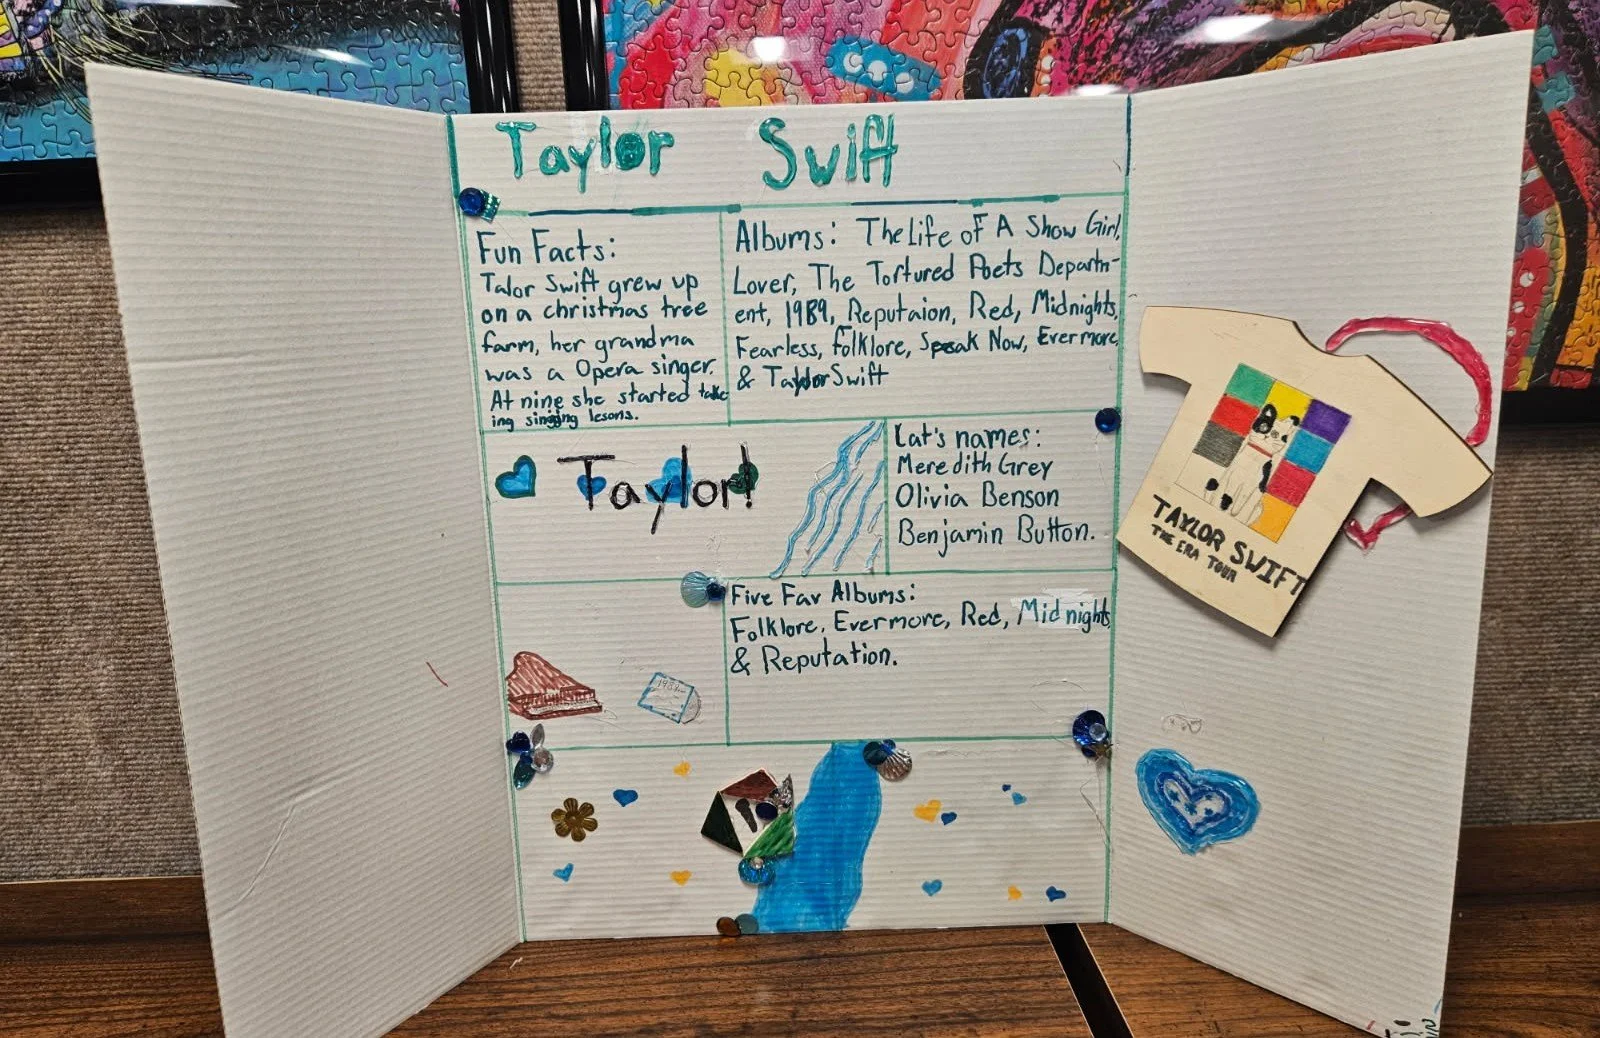 Taylor Swift
Fun Facts:
Talor Swift grew up
on a christmas tree
farm, her grandma
was a Opera singer.
At nine she started take
ing singging lesons.
Albums: The Life of A Show Girl,
Lover, The Tortured Poets Departm-
ent, 1989, Reputaion, Red, Midnights,
Fearless, Folklore, Speak Now, Evermore,
& Taylor Swift
Taylor!
Cat's names:
Meredith Grey
Olivia Benson
Benjamin Button.
Five Fav Albums:
Folklore, Evermore, Red, Midnights,
& Reputation.
1989
TAYLOR SWIFT
THE ERA TOUR